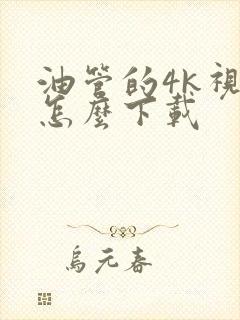 油管的4K視
怎麼下載
烏元春